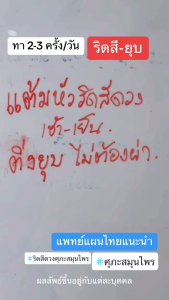 ทา 2-3 ครั้ง/วัน
ริดสี-ยุบ
แต้มหัวริดสีดวง
เช้า-เย็น.
ติ่งยุบ ไม่ต้องผ่า.
แพทย์แผนไทยแนะนำ
#ริดสีดวงศุภะสมุนไพร
#ศุภะสมุนไพร
ผลลัพย์ขึ้นอยู่กับแต่ละบุคคล